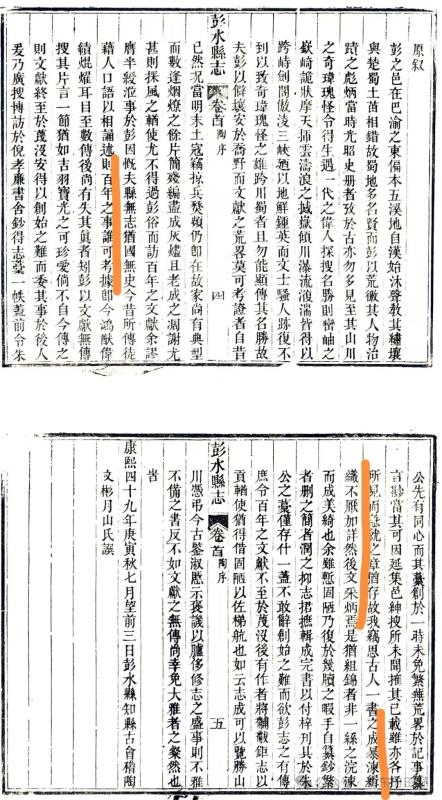 原叙
彭之邑在巴渝之東偏本五溪地自漢始沐聲教其繡壤
與楚蜀土苗相錯故蜀地多名賢而彭以荒徼其人物治
蹟之彪炳當時光昭史册者攷於古亦勿多見至其山川
之奇瑋瑰怪令得生遇一代之偉人探搜名勝則巒岫之
嶔崎詭狀摩天揷雲濤浪之撼嶽傾川瀑流湲湍皆得以
跨峙劍閣傲淩三峽廼以地鮮鍾英而文士騷人跡復不
到以致奇瑋瑰怪之雄跨川蜀者且勿能顯傳其名勝故
夫彭以僻壤安於喬野而文獻之荒畧莫可考證者自昔
彭水縣志 卷首 陶序 四
已然况當明末土寇竊掠兵燹頻仍卽在故家尚有典型
而數逢烟燎之餘片簡殘編盡成灰燼且老成之凋謝尤
甚則採風之輶使尤不得過彭俗而訪百年之文獻余謬
膺半綬涖事於彭因慨夫縣無志猶國無史今昔所傳徒
藉人口語以相誦述則百年之事誰可考據卽今鴻猷偉
績焜燿耳目至數傳後尚有失其眞者矧彭以文獻無傳
搜其片言一節猶如吉羽寳光之可珍愛倘不自今傳之
則文獻終至於茂沒安得以創始之難而委其事於後人
爰乃廣搜博訪於倪孝廉書舍鈔得志藁一帙蓋前令朱
公先有同心而其藁創於一時未免繁蕪荒畧於記事纂
言尠當其可因延集邑紳搜所未聞摧其已載雖亦各抒
所見而臆說之章猶存故我竊思古人一書之成暴湅緝
織不厭加詳然後文采炳焉是猶組錦者非一絲之浣湅
而成美綺也余雖慙固陋乃復於幾牘之暇手自纂鈔繁
者刪之簡者潤之抑志捃摭輯成完書以付梓刋其於朱
公之藁僅存什一蓋不敢辭創始之難而欲彭志之有傳
庶令百年之文獻不至於茂沒後有作者將黼黻鉅志以
貢輶使猶得借固陋以佐梯航也如云志成可以覽勝山
彭水縣志 卷首 陶序 五
川憑弔今古鑒淑慝示褒譏以臚侈修志之盛事則不雅
不備之書反不如文獻之無傳尚幸免大雅者之粲然也
旹
康熙四十九年庚寅秋七月望前三日彭水縣知縣古會稽陶
文彬月山氏譔